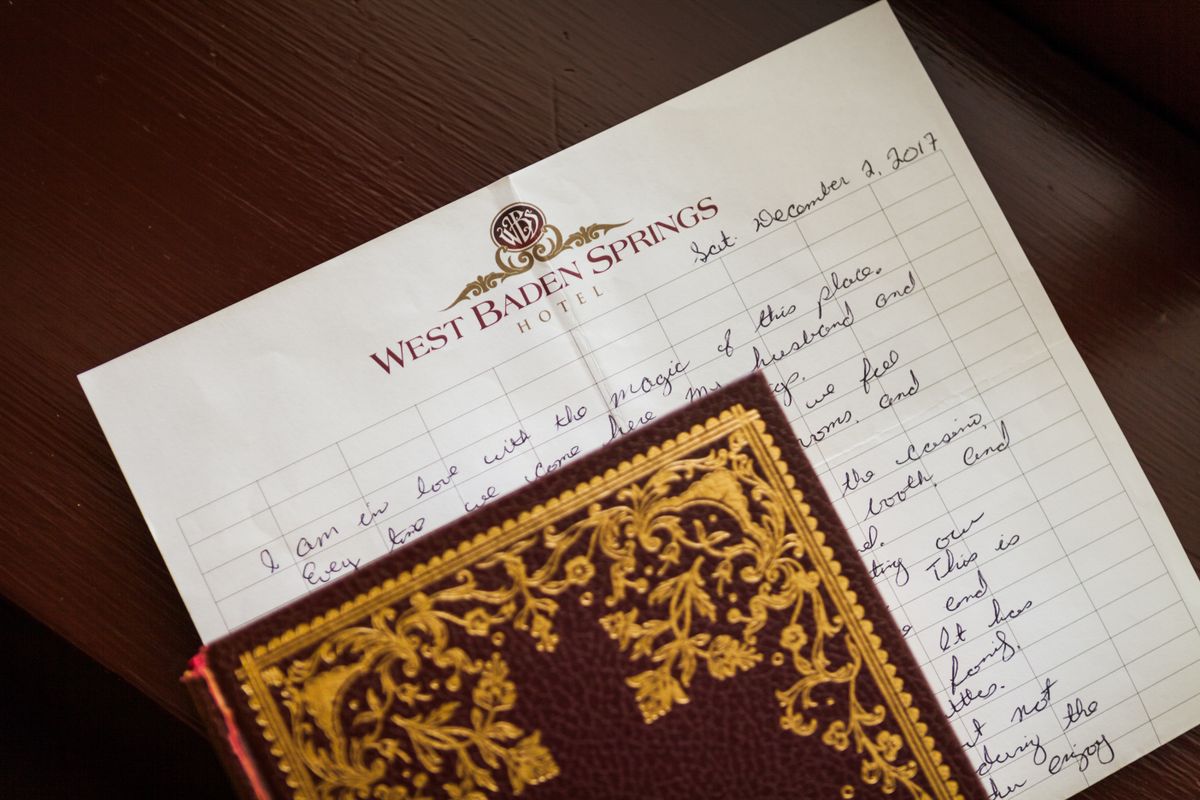 WBS
WEST BADEN SPRINGS
HOTEL
Sat. December 2, 2017
I am in love with the magic of this place.
Every time we come here my husband and
we feel
rooms. and
the casino,
booth and
our
This is
and
It has
not
during the
enjoy